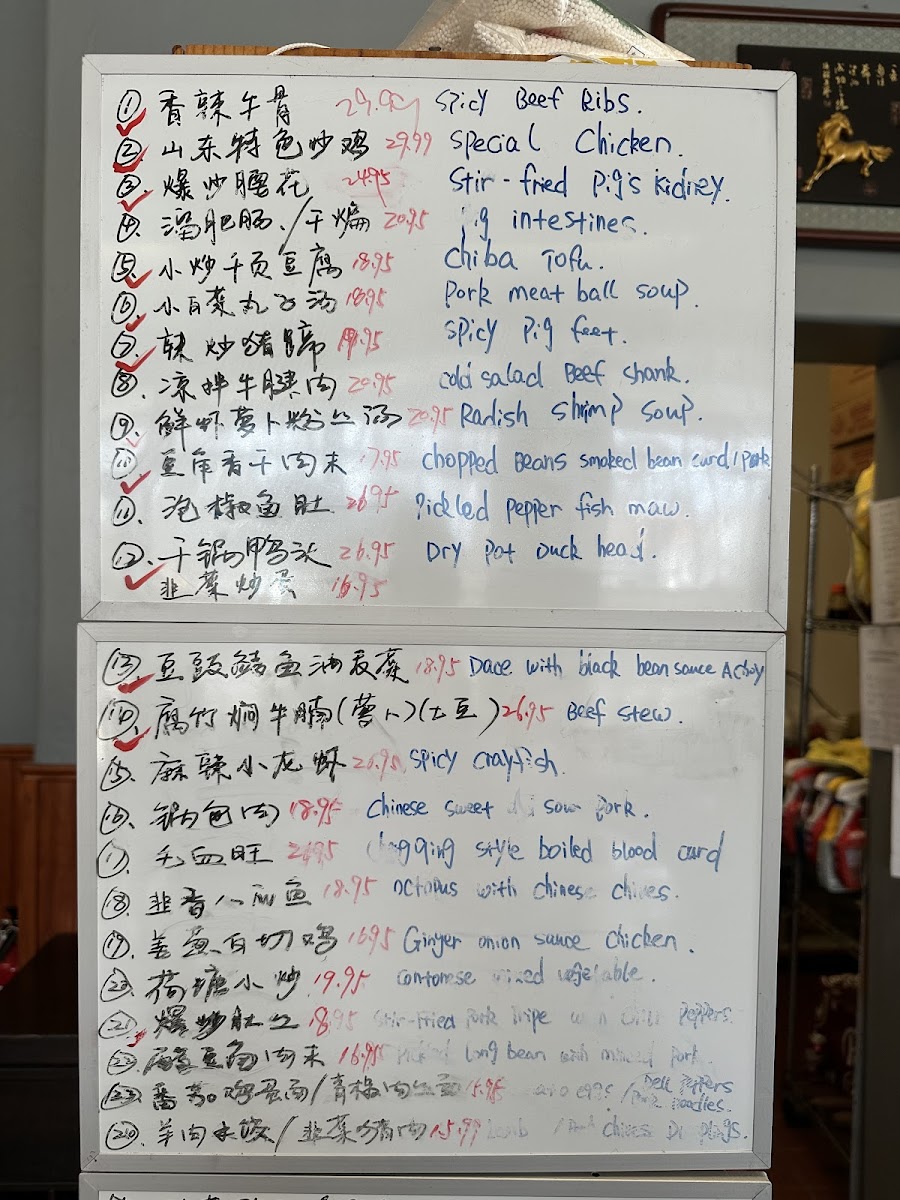 ① 香辣牛骨 29.99 Spicy Beef Ribs.
② 山东特色炒鸡 29.99 Special Chicken.
③ 爆炒腰花 24.95 Stir-fried Pig's kidney.
④ 溜肥肠/干煸 20.95 ig intestines
⑤ 小炒千页豆腐 18.95 Chiba Tofu.
⑥ 小白菜丸子汤 18.95 Pork meat ball soup.
⑦ 辣炒猪蹄 19.95 Spicy pig feet.
⑧ 凉拌牛腱肉 20.95 cold salad Beef shank.
⑨ 鲜虾萝卜粉丝汤 20.95 Radish shrimp soup.
⑩ 豆角香干肉末 17.95 chopped Beans smoked bean curd/pork
⑪ 泡椒鱼肚 26.95 Pickled pepper fish maw.
⑫ 干锅鸭头 26.95 Dry Pot Duck head.
韭菜炒蛋 16.95
⑬ 豆豉鲮鱼油麦菜 18.95 Dace with black bean sauce A choy
⑭ 腐竹焖牛腩(萝卜)(土豆) 26.95 Beef stew.
⑮ 麻辣小龙虾 20.95 Spicy crayfish.
⑯ 锅包肉 18.95 Chinese sweet sour Pork.
⑰ 毛血旺 24.95 qing style boiled blood curd
⑱ 韭香八爪鱼 18.95 octopus with chinese chives.
⑲ 姜葱白切鸡 16.95 Ginger onion sauce chicken.
⑳ 荷塘小炒 19.95 cantonese mixed vegetable.
㉑ 爆炒肚丝 18.95 Stir-Fried Pork Tripe with chili Peppers.
㉒ 酸豆角肉末 16.95 long bean with minced pork.
㉓ 番茄鸡蛋面/青椒肉丝面 15.95 eggs /Bell peppers Pork noodles.
羊肉水饺/韭菜猪肉 15.99 Lamb / Pork chives